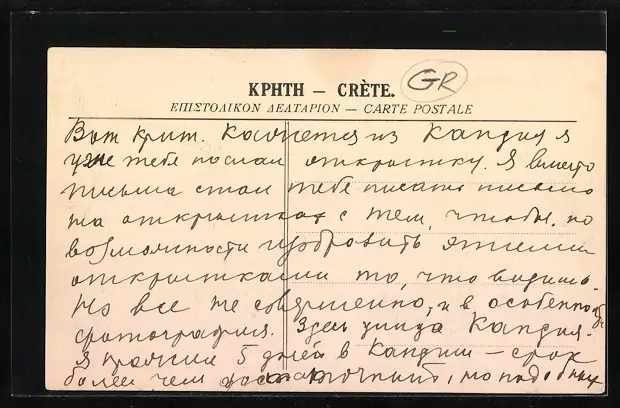 ΚΡΗΤΗ — CRÈTE.
GR
ΕΠΙΣΤΟΛΙΚΟΝ ΔΕΛΤΑΡΙΟΝ — CARTE POSTALE
Вот Крит. Кажется из Кандии я
уже тебе послал открытку. Я вместо
письма стал тебе писать письмо
на открытках с тем, чтобы, по
возможности изобразить этими
открытками то, что видишь.
Но все не совершенно, и в особенноб
фотография. Здесь улица Кандия.
Я прожил 5 дней в Кандии — срок
более чем достаточный, но подобных